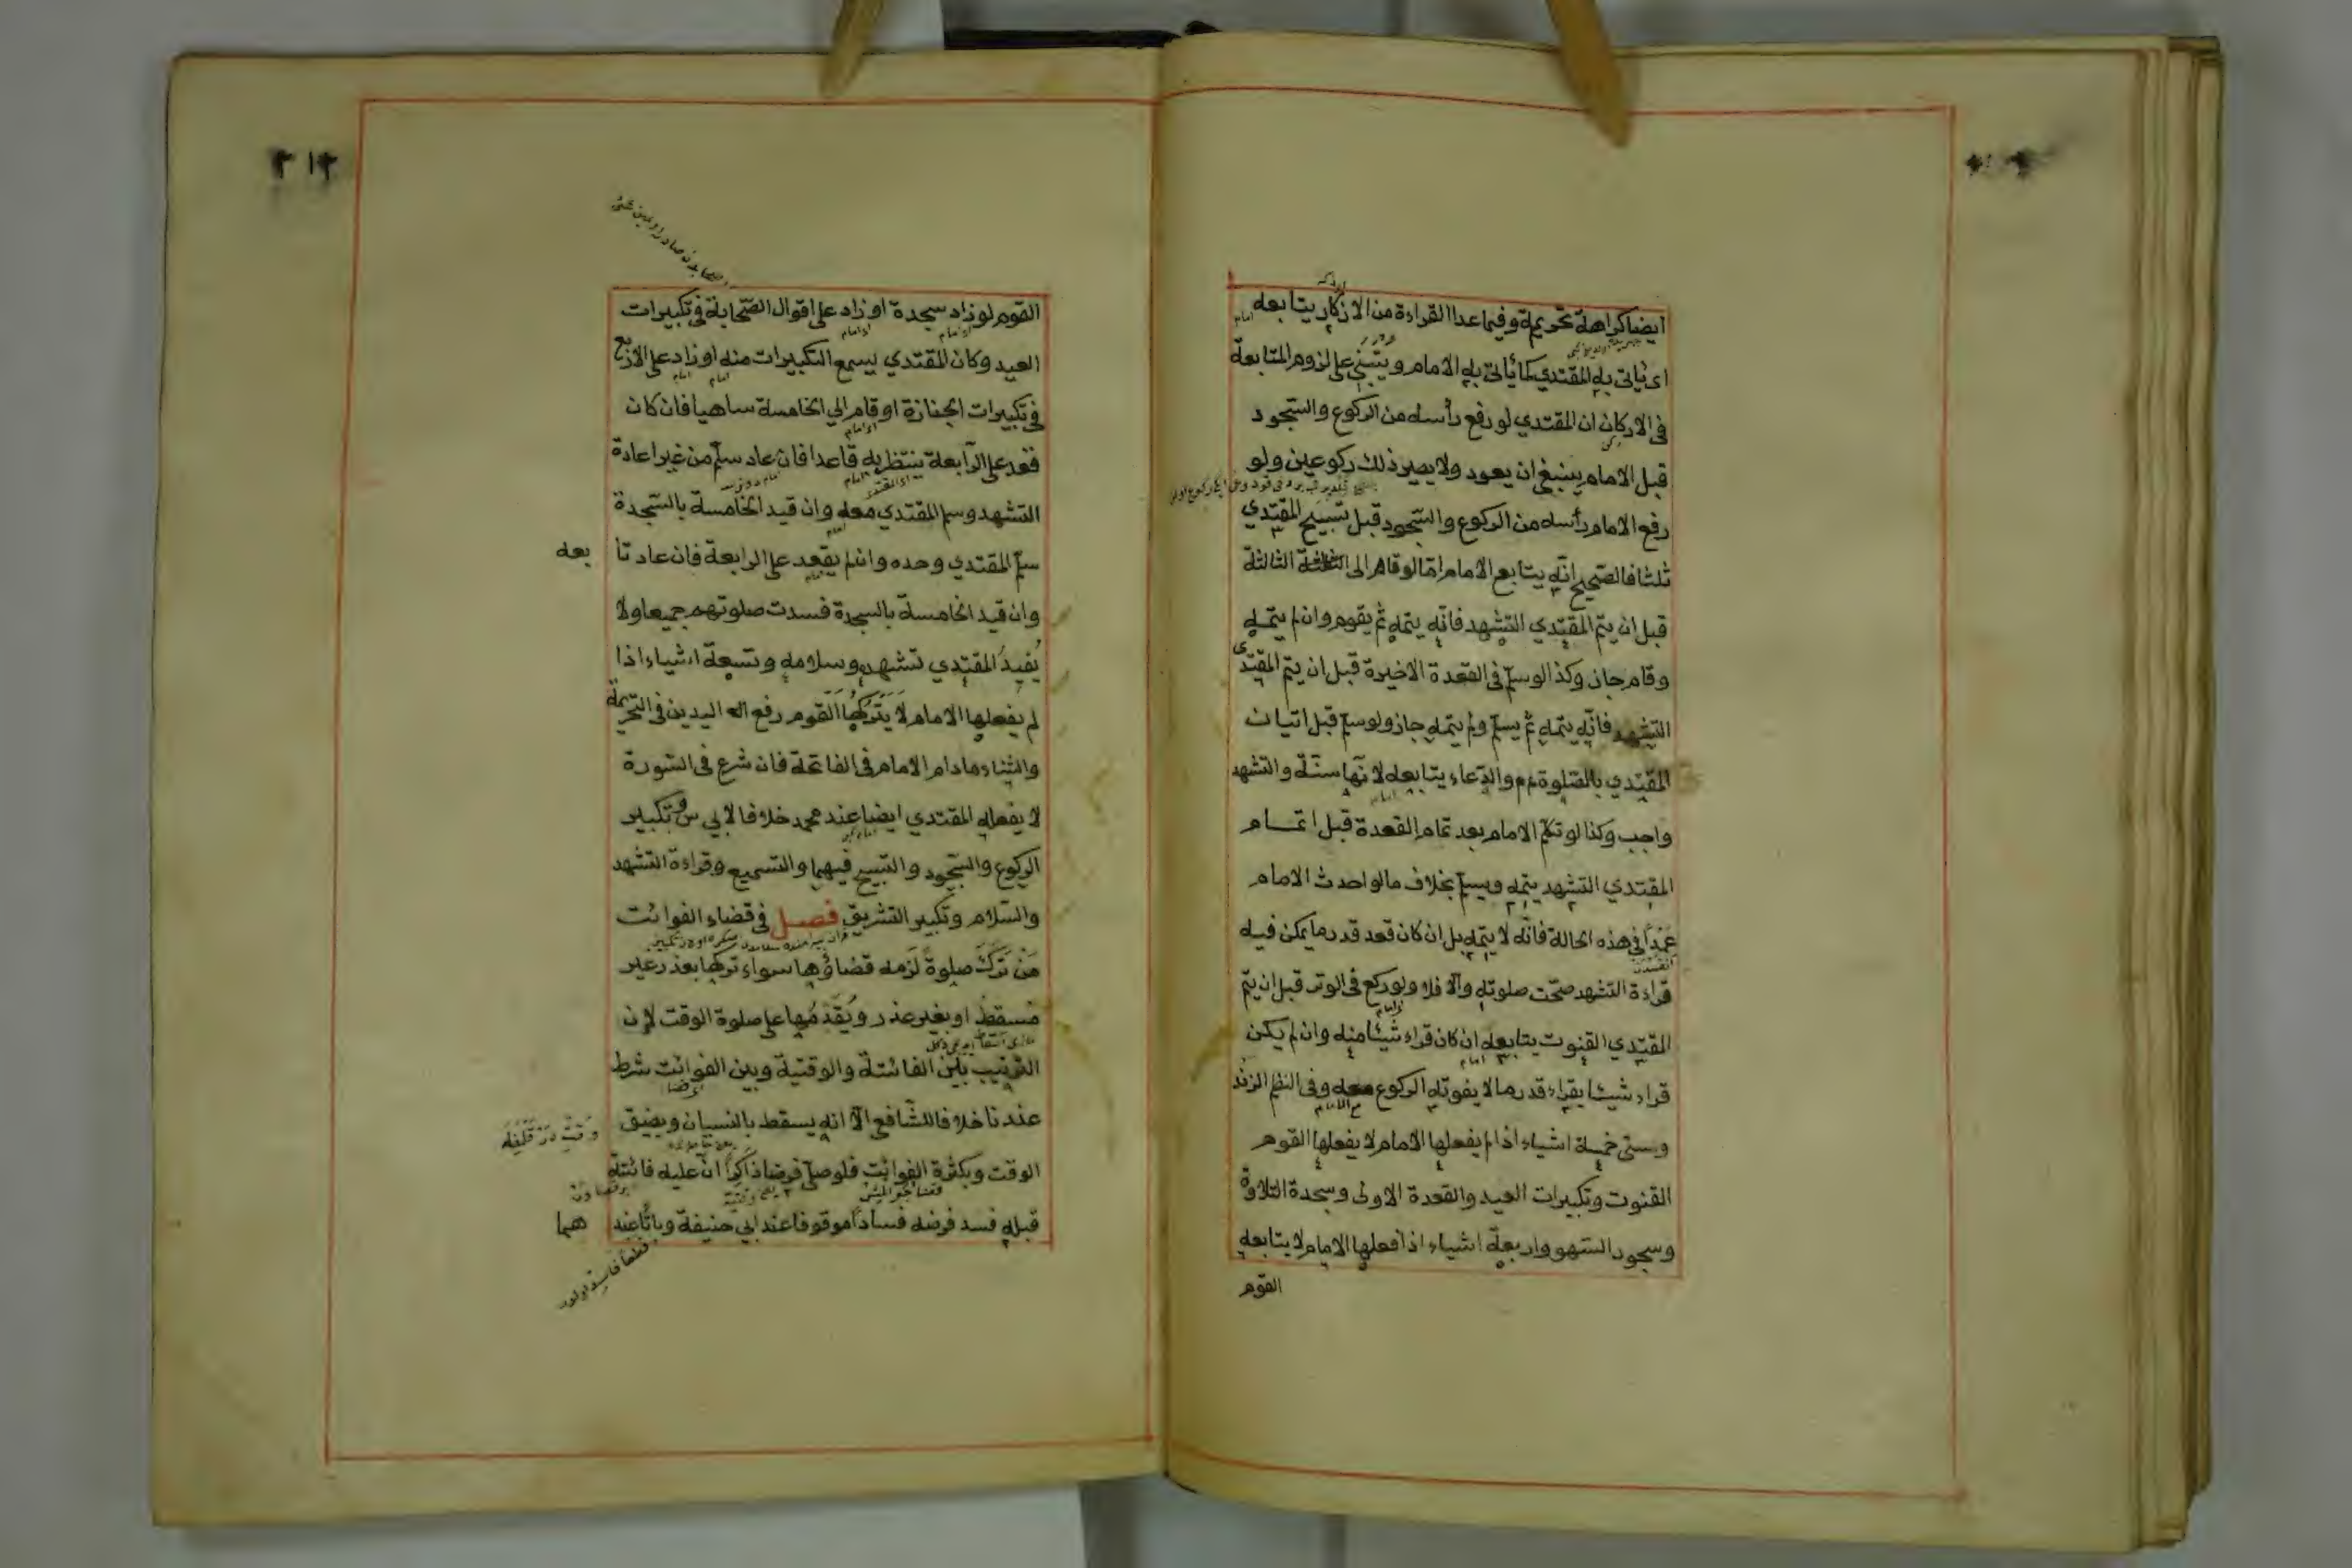 ايضا كراهة تحريمة وفيما عدا القراءة من الاذكار يتابعه
اى ياتى به المقتدي كما يأتى به الامام ويبتنى على لزوم المتابعة
فى الاركان ان المقتدي لو رفع رأسه من الركوع والسجود
قبل الامام ينبغى ان يعود ولا يصير ذلك ركوعين ولو
رفع الامام رأسه من الركوع والسجود قبل تسبيح المقتدي
ثلثا فالصحيح انه يتابع الامام امّا لو قام الى الثالثة
قبل ان يتم المقتدي التشهد فانّه يتمه ثم يقوم وان لم يتمه
وقام جاز وكذا لو سلّم فى القعدة الاخيرة قبل ان يتم المقتدى
التشهد فانّه يتمه ثم يسلم ولم يتمه جاز ولو سلم قبل اتيان
المقتدي بالصلوة والدّعاء يتابعه لانّها سنّة والتشهد
واجب وكذا لو تكلم الامام بعد تمام القعدة قبل اتمام
المقتدي التشهد يتمه ويسلم بخلاف ما لو احدث الامام
عمداً فى هذه الحالة فانّه لا يتمه بل ان كان قعد قدر ما يمكن فيه
قراءة التشهد صحّت صلوته والّا فلا ولو ركع فى الوتر قبل ان يتم
المقتدي القنوت يتابعه ان كان قراء شيئا منه وان لم يكن
قراء شيئا يقراء قدر ما لا يفوته الركوع معه وفى النظم الزند
وستى خمسة اشياء اذا لم يفعلها الامام لا يفعلها القوم
القنوت وتكبيرات العيد والقعدة الاولى وسجدة التلاوة
وسجود السّهو واربعة اشياء اذا فعلها الامام لا يتابعه
القوم
٢١٢
القوم لو زاد سجدة او زاد على اقوال الصّحابة فى تكبيرات
العيد وكان المقتدي يسمع التكبيرات منه او زاد على الاربع
فى تكبيرات الجنازة او قام الي الخامسة ساهيا فان كان
قعد على الرابعة ينتظر به قاعدا فان عاد سلّم من غير اعادة
التشهد وسلم المقتدي معه وان قيد الخامسة بالسّجدة
سلّم المقتدي وحده وان لم يقعد على الرابعة فان عاد تا
بعه
وان قيد الخامسة بالسجدة فسدت صلوتهم جميعا ولا
يُفيدُ المقتدي تشهده وسلامه وتسعة اشياء اذا
لم يفعلها الامام لا يتركها القوم رفع اله اليدين فى التحريمة
والثناء مادام الامام فى الفاتحة فان شرع فى السّورة
لا يفعله المقتدي ايضا عند محمد خلافا لابي س وتكبير
الركوع والسّجود والتسبيح فيهما والتسميع وقراءة التشهد
والسّلام وتكبير التشريق فصل فى قضاء الفوائت
مَنْ تَرَكَ صلوةً لَزِمه قضاؤها سواء تركها بعذر غير
مُسقط او بغير عذر ويُقَدِّمُها على صلوة الوقت لان
الترتيب بين الفائتة والوقتية وبين الفوائت شرط
عندنا خلافا للشّافعي الّا انه يسقط بالنسيان وبضيق
الوقت وبكثرة الفوائت فلو صلّى فرضا ذاكراً انّ عليه فائتة
قبله فسد فرضه فساداً موقوفا عند ابي حنيفة وباتّا عند
هما